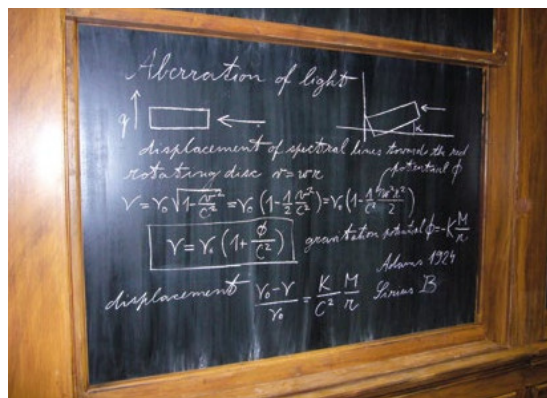 Aberration of light
q
α
displacement of spectral lines towards the red
rotating disc v=ωr
potential ϕ
ν=ν₀√(1-v²/c²)=ν₀(1-1/2 v²/c²)=ν₀(1-1/c² ω²r²/2)
ν=ν₀(1+ϕ/c²) gravitation potential ϕ=-K M/r
Adams 1924
displacement (ν₀-ν)/ν₀=K/c² M/r Sirius B